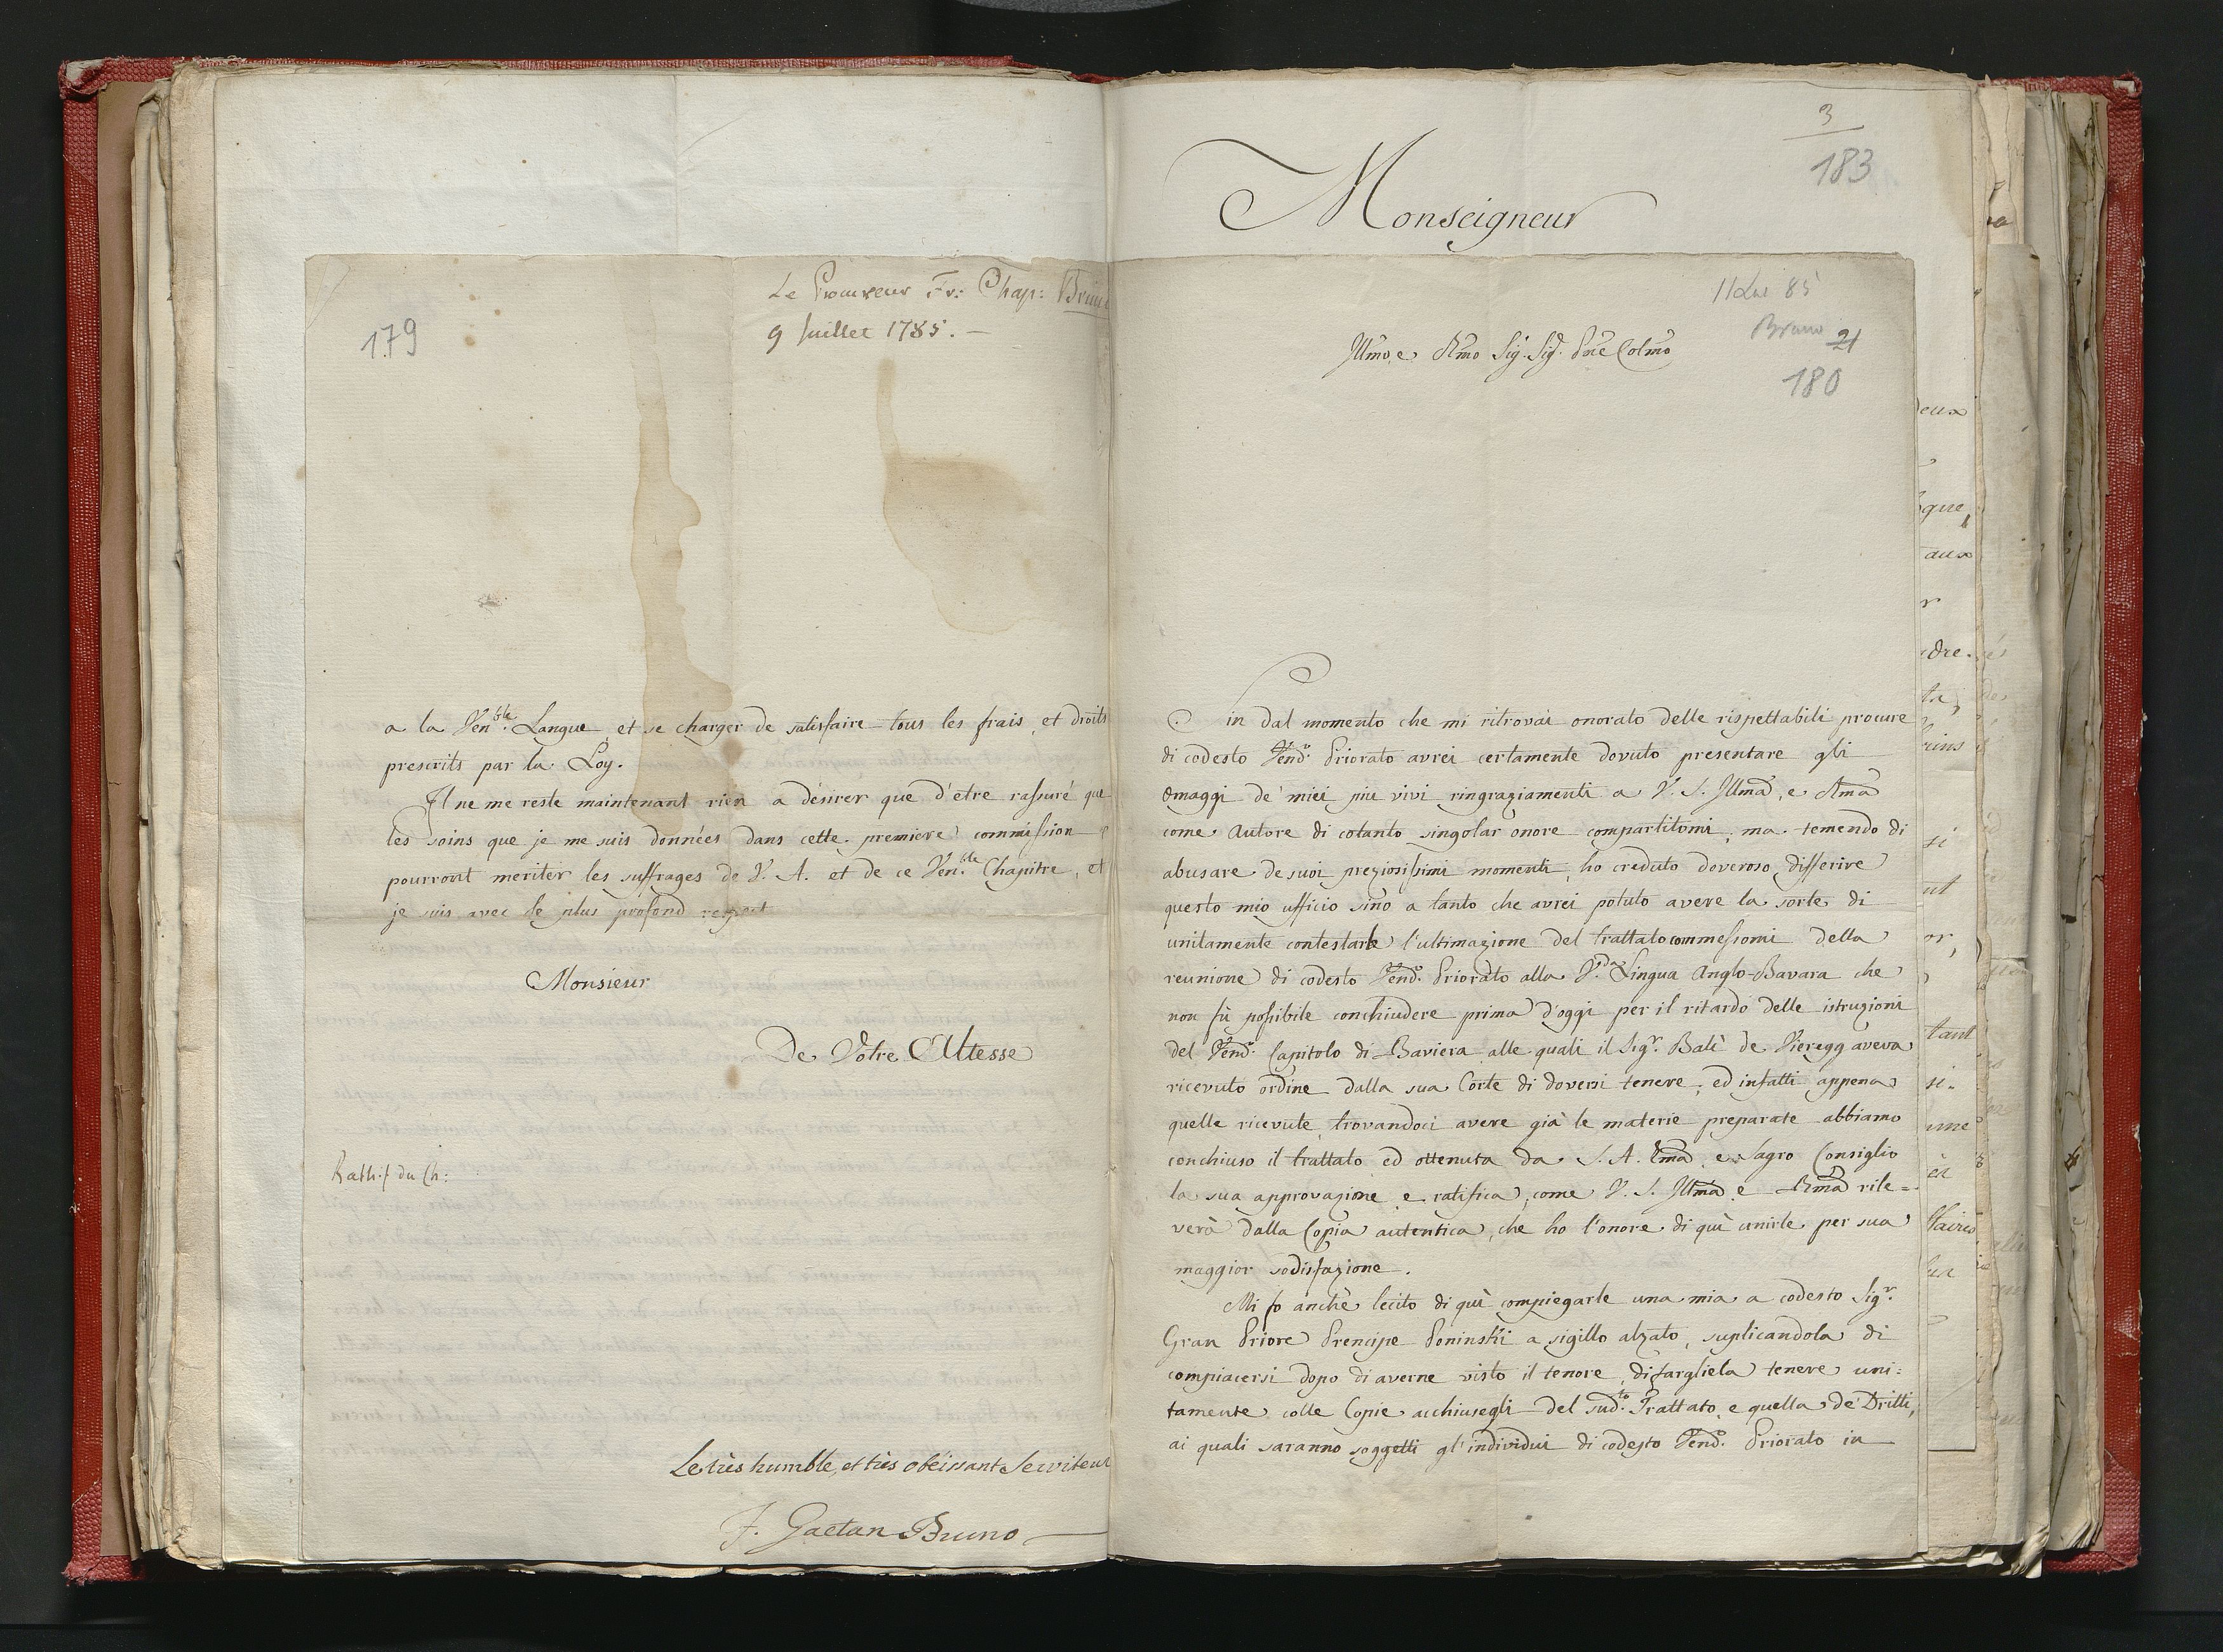 Le Procureur Fr: Chap: Brun
9 Juillet 1785. –
179
a la Ven.ble Langue, et se charger de satisfaire tous les frais, et droits
prescrits par la Loy.
Il ne me reste maintenant rien a désirer que d'etre rassuré que
les soins que je me suis données dans cette premiere commission
pourront meriter les suffrages de V. A. et de ce Ven.ble Chapitre, et
je suis avec le plus profond respect
Monsieur
De Votre Altesse
Rathif du Ch:
Le très humble, et très obéissant Serviteur
F. Gaetan Bruno
3
183
Monseigneur
85
Bruno
21
180
Illmo, e Rmo Sig. Sig. Pne Colmo
in dal momento che mi ritrovai onorato delle rispettabili procure
di codesto Vendo. Priorato avrei certamente dovuto presentare gli
omaggi de' miei piu vivi ringraziamenti a V. S. Illma, e Rma
come Autore di cotanto singolar onore compartitomi, ma temendo di
abusare de suoi preziosissimi momenti, ho creduto doveroso, differire
questo mio ufficio sino a tanto che avrei potuto avere la sorte di
unitamente contestarle l'ultimazione del trattato commessomi della
reunione di codesto Vendo. Priorato alla V.da Lingua Anglo-Bavara che
non fù possibile conchiudere prima d'oggi per il ritardo delle istruzioni
del Vendo. Capitolo di Baviera alle quali il Sigr. Balì de Vieregg aveva
ricevuto ordine dalla sua Corte di doversi tenere; ed infatti appena
quelle ricevute, trovandoci avere già le materie preparate abbiamo
conchiuso il trattato, ed ottenuta da S. A. Ema, e Sagro Consiglio
la sua approvazione e ratifica, come V. S. Illma e Rma rile=
verà dalla Copia autentica, che ho l'onore di quì unirle per sua
maggior sodisfazione.
Mi fo anche lecito di quì compiegarle una mia a codesto Sigr.
Gran Priore Prencipe Poninski a sigillo alzato, suplicandola di
compiacersi dopo di averne visto il tenore, di fargliela tenere uni=
tamente colle Copie acchiusegli del sud.to Trattato, e quella de' Dritti,
ai quali saranno soggetti gl'individui di codesto Vendo. Priorato in
eux
que,
aux
r
dre.
ta,
rins
si
nt
or,
tant
si-
une
en
taires